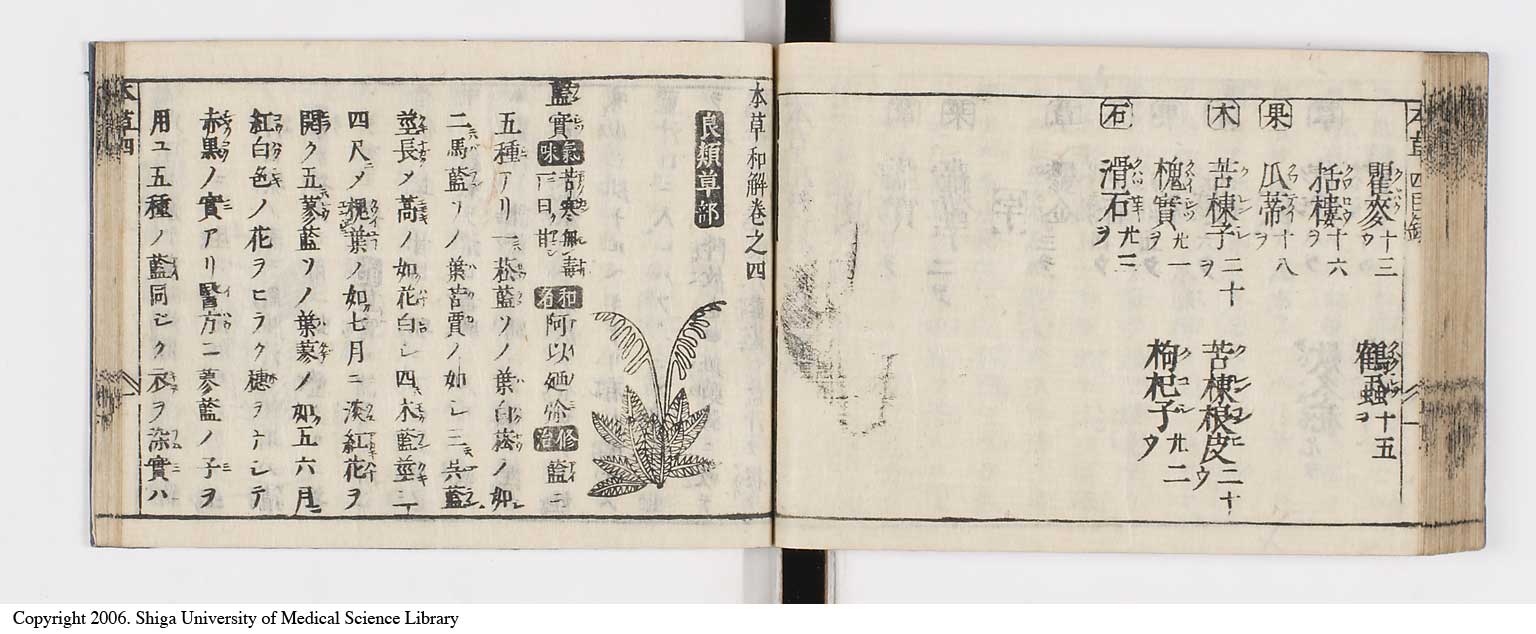 瞿麥 十三 鶴蝨 十五
括樓 十六
果 瓜蒂 十八
木 苦楝子 二十 苦楝根皮 二十
槐實 廿一 枸杞子 廿二
石 滑石 廿三
本草和解巻之四
良類草部
藍實 氣味 苦寒無毒 一曰甘 和名 阿以廼 修治 藍ニ
五種アリ一菘藍ソノ葉白菘ノ如シ
二馬藍ソノ葉苦蕒ノ如シ三呉藍
莖長メ蒿ノ如花白シ四木藍莖
四尺メ槐葉ノ如七月ニ淡紅花ヲ
開ク五蓼藍ソノ葉蓼ノ如五六月
紅白色ノ花ヲヒラク穗ヲナシテ
赤黒ノ實アリ醫方ニ蓼藍ノ子ヲ
用ユ五種ノ藍同シク衣ヲ染實ハ
本草四
Copyright 2006. Shiga University of Medical Science Library